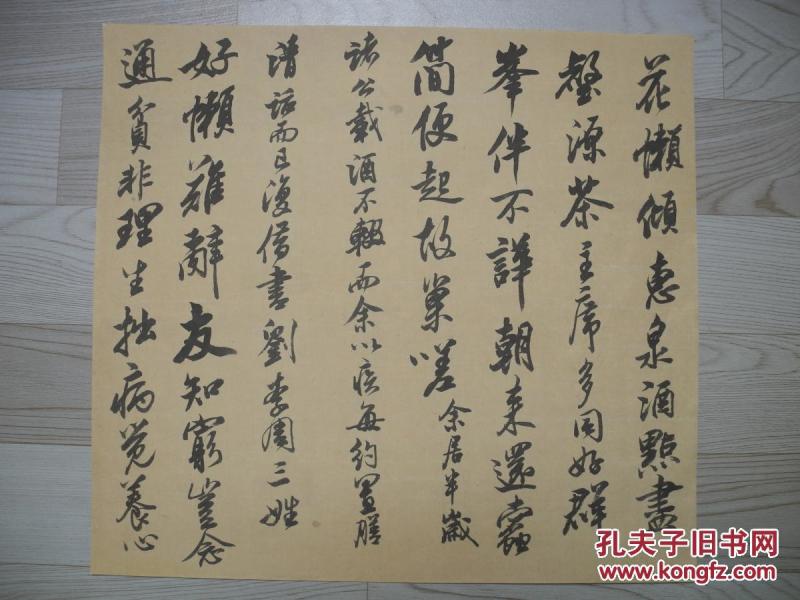 花懶傾惠泉酒點盡
壑源茶主席多同好群
峯伴不譁朝来還蠹
簡便起故巢嗟余居半歲
諸公載酒不輟而余以疾每約置膳
清話而已復借書劉李周三姓
好懶難辭友知窮豈念
通貧非理生拙病覚養心
孔夫子旧书网
www.kongfz.com